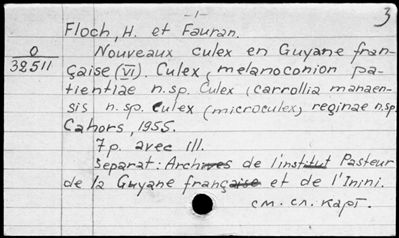 -1-
3
Floch, H. et Fauran.
O
32511
Nouveaux culex en Guyane fran-
çaise (VI). Culex, melanoconion pa-
tientiae n.sp. Culex, carrollia manaen-
sis n. sp. Culex (microculex) reginae n.sp
Cahors, 1955.
7 p. avec ill.
Separat: Archives de l'institut Pasteur
de la Guyane française et de l'Inini.
см. сл. карт.